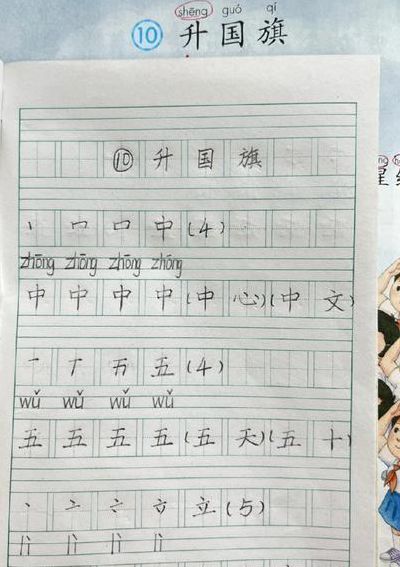 shēng guó qí
⑩ 升国旗
⑩ 升国旗
丶 冖 口 中(4)
zhōng zhōng zhōng zhōng
中 中 中 中(中心)(中文)
一 丅 五(4)
wǔ wǔ wǔ wǔ
五 五 五 五(五天)(五十)
丶 亠 立(5)
lì lì lì lì
星